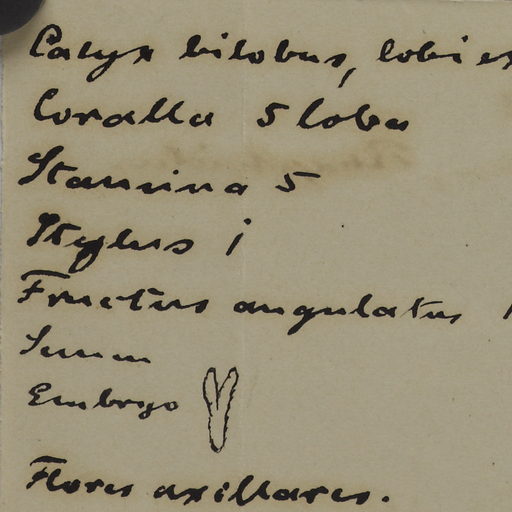 Calyx bilobus, lobi ex
Corolla 5 loba
Stamina 5
Stylus 1
Fructus angulatus 1
Semen
Embryo
Flores axillares.